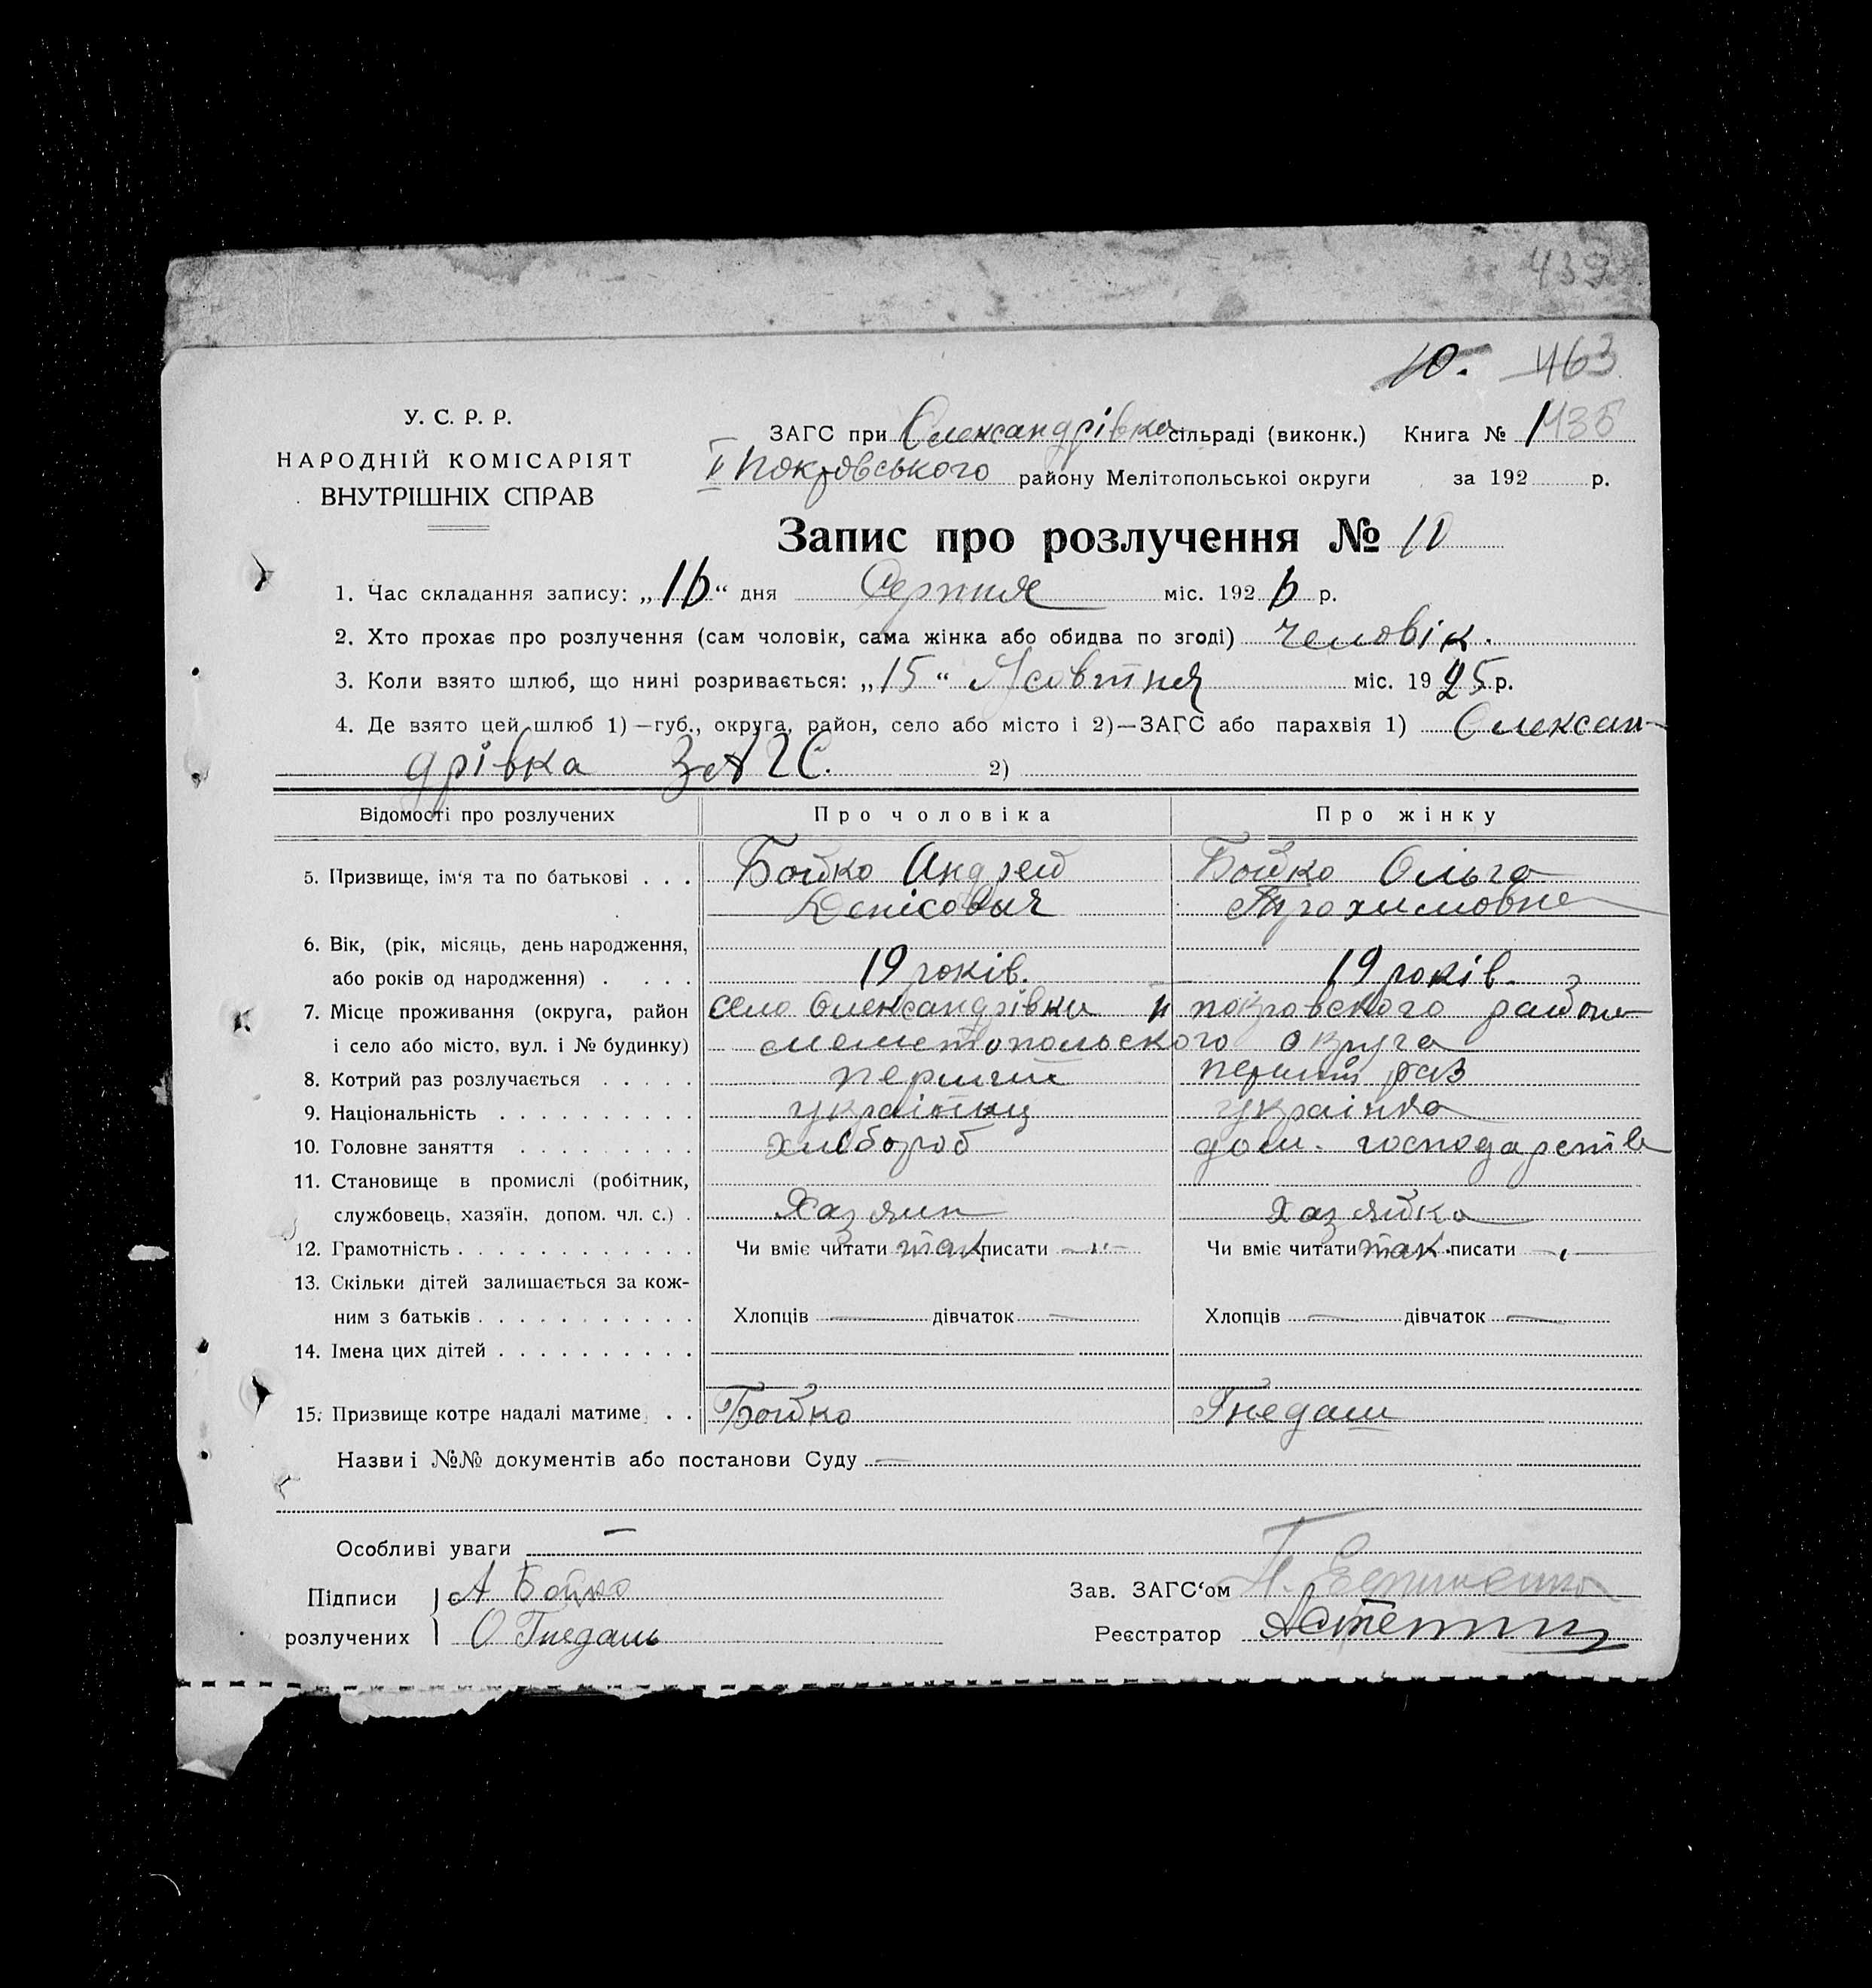 439
10. 463
У. С. Р. Р.
НАРОДНІЙ КОМІСАРІЯТ
ВНУТРІШНІХ СПРАВ
ЗАГС при Олександрівка сільраді (виконк.) Книга № 1
ІІ Покровського району Мелітопольськоі округи за 192 р.
Запис про розлучення № 10
1. Час складання запису: „16“ дня Серпня міс. 1926 р.
2. Хто прохає про розлучення (сам чоловік, сама жінка або обидва по згоді) человік.
3. Коли взято шлюб, що нині розривається: „15“ Жовтня міс. 1925 р.
4. Де взято цей шлюб 1)—губ., округа, район, село або місто і 2)—ЗАГС або парахвія 1) Олексан-
дрівка ЗАГС. 2)
Відомості про розлучених Про чоловіка Про жінку
5. Призвище, ім‘я та по батькові . . . Бойко Андрей Бойко Ольга
Денісович Трохимовна
6. Вік, (рік, місяць, день народження,
або років од народження) . . . . 19 років. 19 років.
7. Місце проживання (округа, район село Олександрівки ІІ покровского района
і село або місто, вул. і № будинку) мелетопольского округа
8. Котрий раз розлучається . . . . . перший перший раз
9. Національність . . . . . . . . . . українец українка
10. Головне заняття . . . . . . . . . хлібороб дом. господарства
11. Становище в промислі (робітник,
службовець, хазяїн, допом. чл. с.) . Хазяин хазяйка
12. Грамотність . . . . . . . . . . . . Чи вміє читати так писати —"— Чи вміє читати так. писати —"—
13. Скільки дітей залишається за кож-
ним з батьків . . . . . . . . . . . Хлопців — дівчаток — Хлопців — дівчаток —
14. Імена цих дітей . . . . . . . . . .
15. Призвище котре надалі матиме . . Бойко Гнедаш
Назви і №№ документів або постанови Суду —
Особливі уваги —
Підписи А Бойко Зав. ЗАГС‘ом
розлучених О Гнедаш Реєстратор